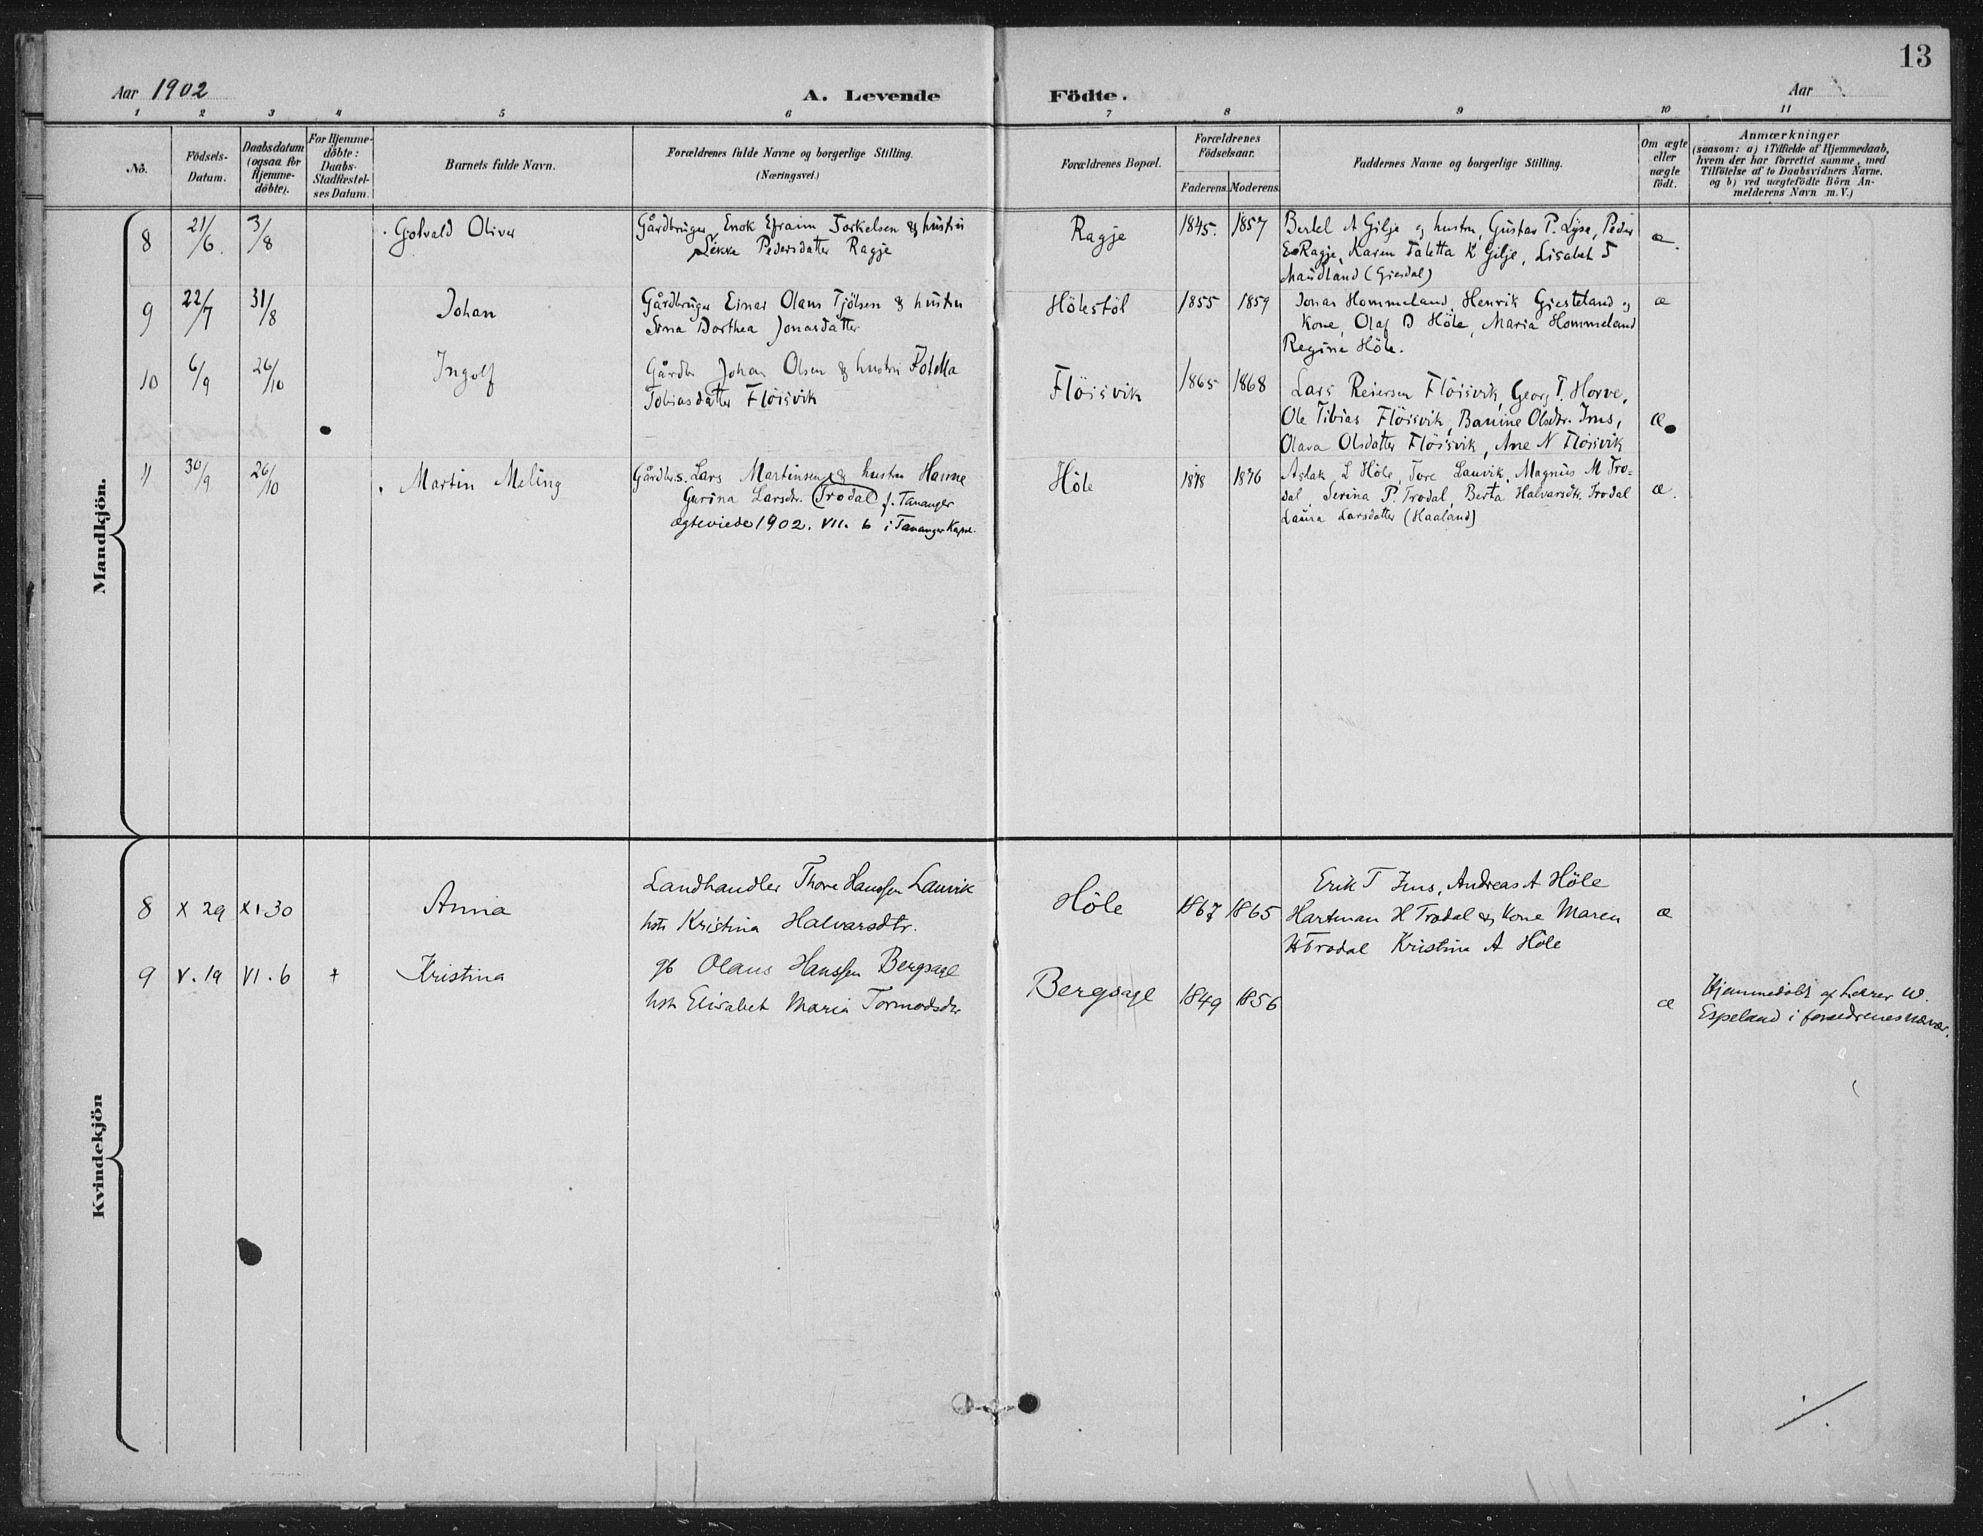 13
Aar 1902
A. Levende Födte.
Aar
1 2 3 4 5 6 7 8 9 10 11
No.
Födsels-
Datum.
Daabsdatum
(ogsaa for
Hjemme-
döbte).
For Hjemme-
döbte:
Daabs-
Stadfæstel-
ses Datum.
Barnets fulde Navn.
Forældrenes fulde Navne og borgerlige Stilling.
(Næringsvei.)
Forældrenes Bopæl.
Forældrenes
Födselsaar.
Faderens. Moderens.
Faddernes Navne og borgerlige Stilling.
Om ægte
eller
uægte
födt.
Anmærkninger
(saasom: a) i Tilfælde af Hjemmedaab,
hvem der har forrettet samme, med
Tilföielse af to Daabsvidners Navne,
og b) ved uægtefödte Börn An-
melderens Navn m. V.)
Mandkjön.
8 21/6. 3/8 Gotvald Oliver
Gårdbruger Enok Efraim Torkelsen & hustru
Lékka Pedersdatter Ragje
Ragje 1845. 1857
Bertel A Gilje og hustru, Gustav P. Lyse, Peder
E Ragje, Karen Taletta K Gilje, Lisabet T
Maudland (Gjesdal)
æ.
9 22/7 31/8 Johan
Gårdbruger Einar Olaus Tjölsen & hustru
Serna Dorthea Jonasdatter
Hölestöl 1855 1859
Jonas Hommeland, Henrik Giesteland og
Kone, Olaf D Höle, Maria Hommeland
Regine Höle.
æ
10 6/9 26/10 Ingolf
Gårdbr Johan Olsen & hustru Botella
Tobiasdatter Flöisvik
Flöisvik 1865 1868
Lars Reiersen Flöisvik, Georg T. Horve,
Ole Tobias Flöisvik, Banine Olsdtr. Ims,
Olava Olsdatter Flöisvik, Ane N Flöisvik
æ
11 30/9 26/10 Martin Meling
Gårdbr.s. Lars Martinsen & hustru Hanne
Gurina Larsdtr. (Trodal) f. Tananger
ægteviede 1902. VII. 6 i Tananger Kapel.
Höle 1878 1876
Aslak L Höle, Tore Lauvik, Magnus M Tro=
dal, Serina P. Trodal, Berta Halvarsdtr. Trodal
Laura Larsdatter (Haaland)
æ.
Kvindekjön
8 X 29 XI 30 Anna
Landhandler Thore Hanssen Lauvik
hstr Kristina Halvarsdtr.
Höle 1867 1865
Erik T Ims, Andreas A Höle
Hartman H Trodal & Kone Maren
Trodal Kristina A Höle
æ
9 V. 19 VI. 6 + Kristina
gb Olaus Hanssen Bergsagl
hstr Elisabet Maria Tormodsdtr
Bergsagl 1849 1856
æ
Hjemmedöbt af Lærer W.
Espeland i forældrenes nærvær.